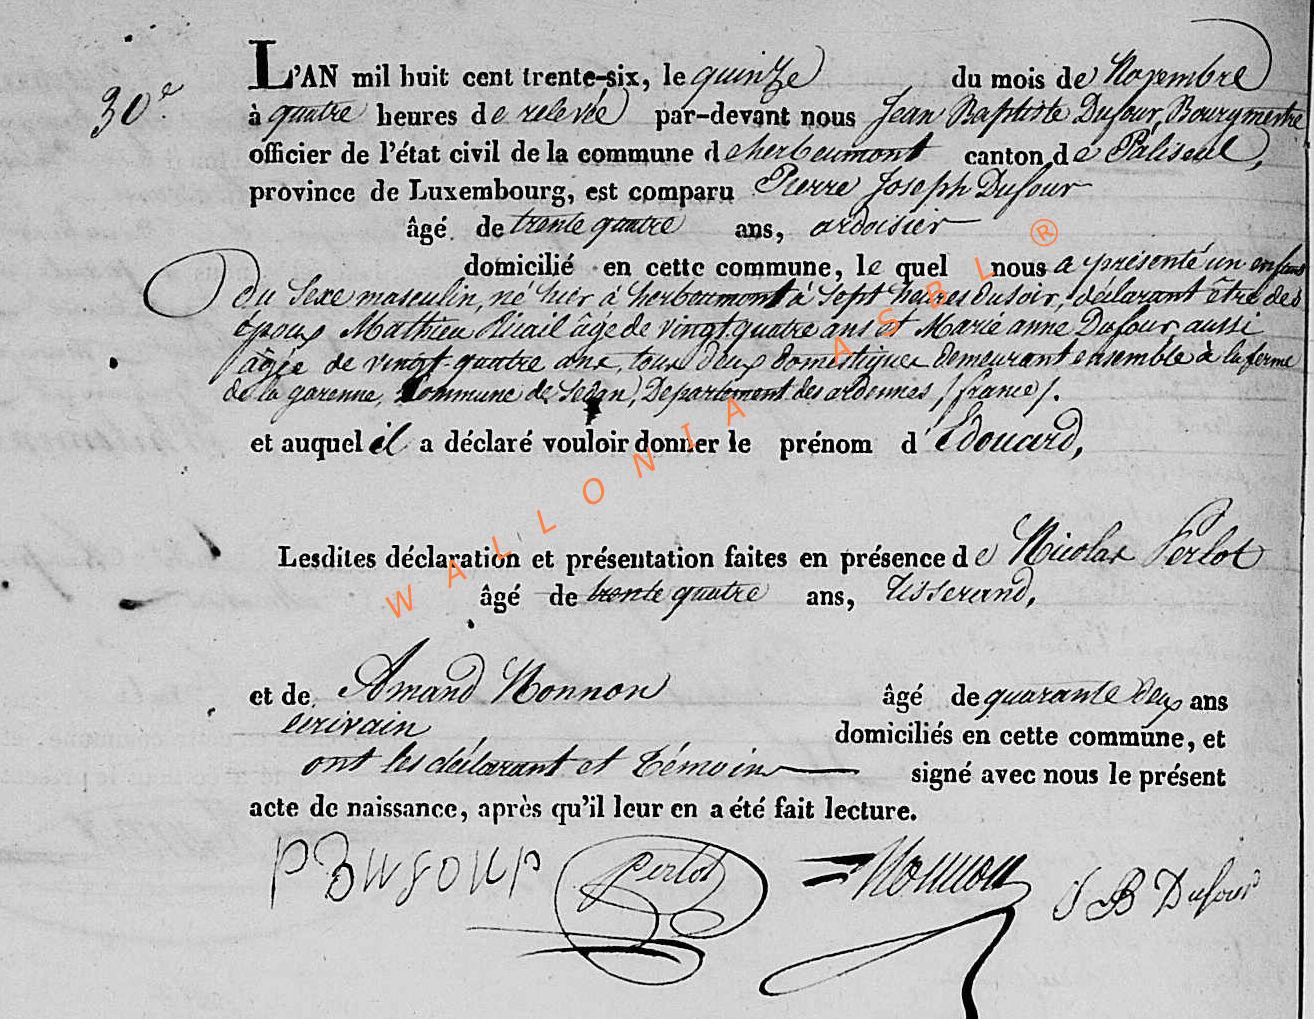 30e
L'AN mil huit cent trente-six, le quinze du mois de Novembre
à quatre heures de relevée par-devant nous Jean Baptiste Dufour, Bourgmestre
officier de l'état civil de la commune d'herbeumont canton de Paliseul,
province de Luxembourg, est comparu Pierre Joseph Dufour
âgé de trente quatre ans, ardoisier
domicilié en cette commune, le quel nous a présenté un enfant
du Sexe masculin, né hier à herbeumont à Sept heures du soir, déclarant être des
époux Mathieu âgé de vingt-quatre ans et Marie anne Dufour, aussi
âgée de vingt-quatre ans, tous deux domestiques demeurant ensemble à la ferme
de la garenne, Commune de Sedan, Departement des ardennes, (france).
et auquel il a déclaré vouloir donner le prénom d'Edouard,
Lesdites déclaration et présentation faites en présence de Nicolas Perlot
âgé de trente quatre ans, Tisserand,
et de Amand Nonnon âgé de quarante deux ans
écrivain domiciliés en cette commune, et
ont les déclarant et témoins signé avec nous le présent
acte de naissance, après qu'il leur en a été fait lecture.
P Dufour Perlot Nonnon J B Dufour
WALLONIA ASBL ®